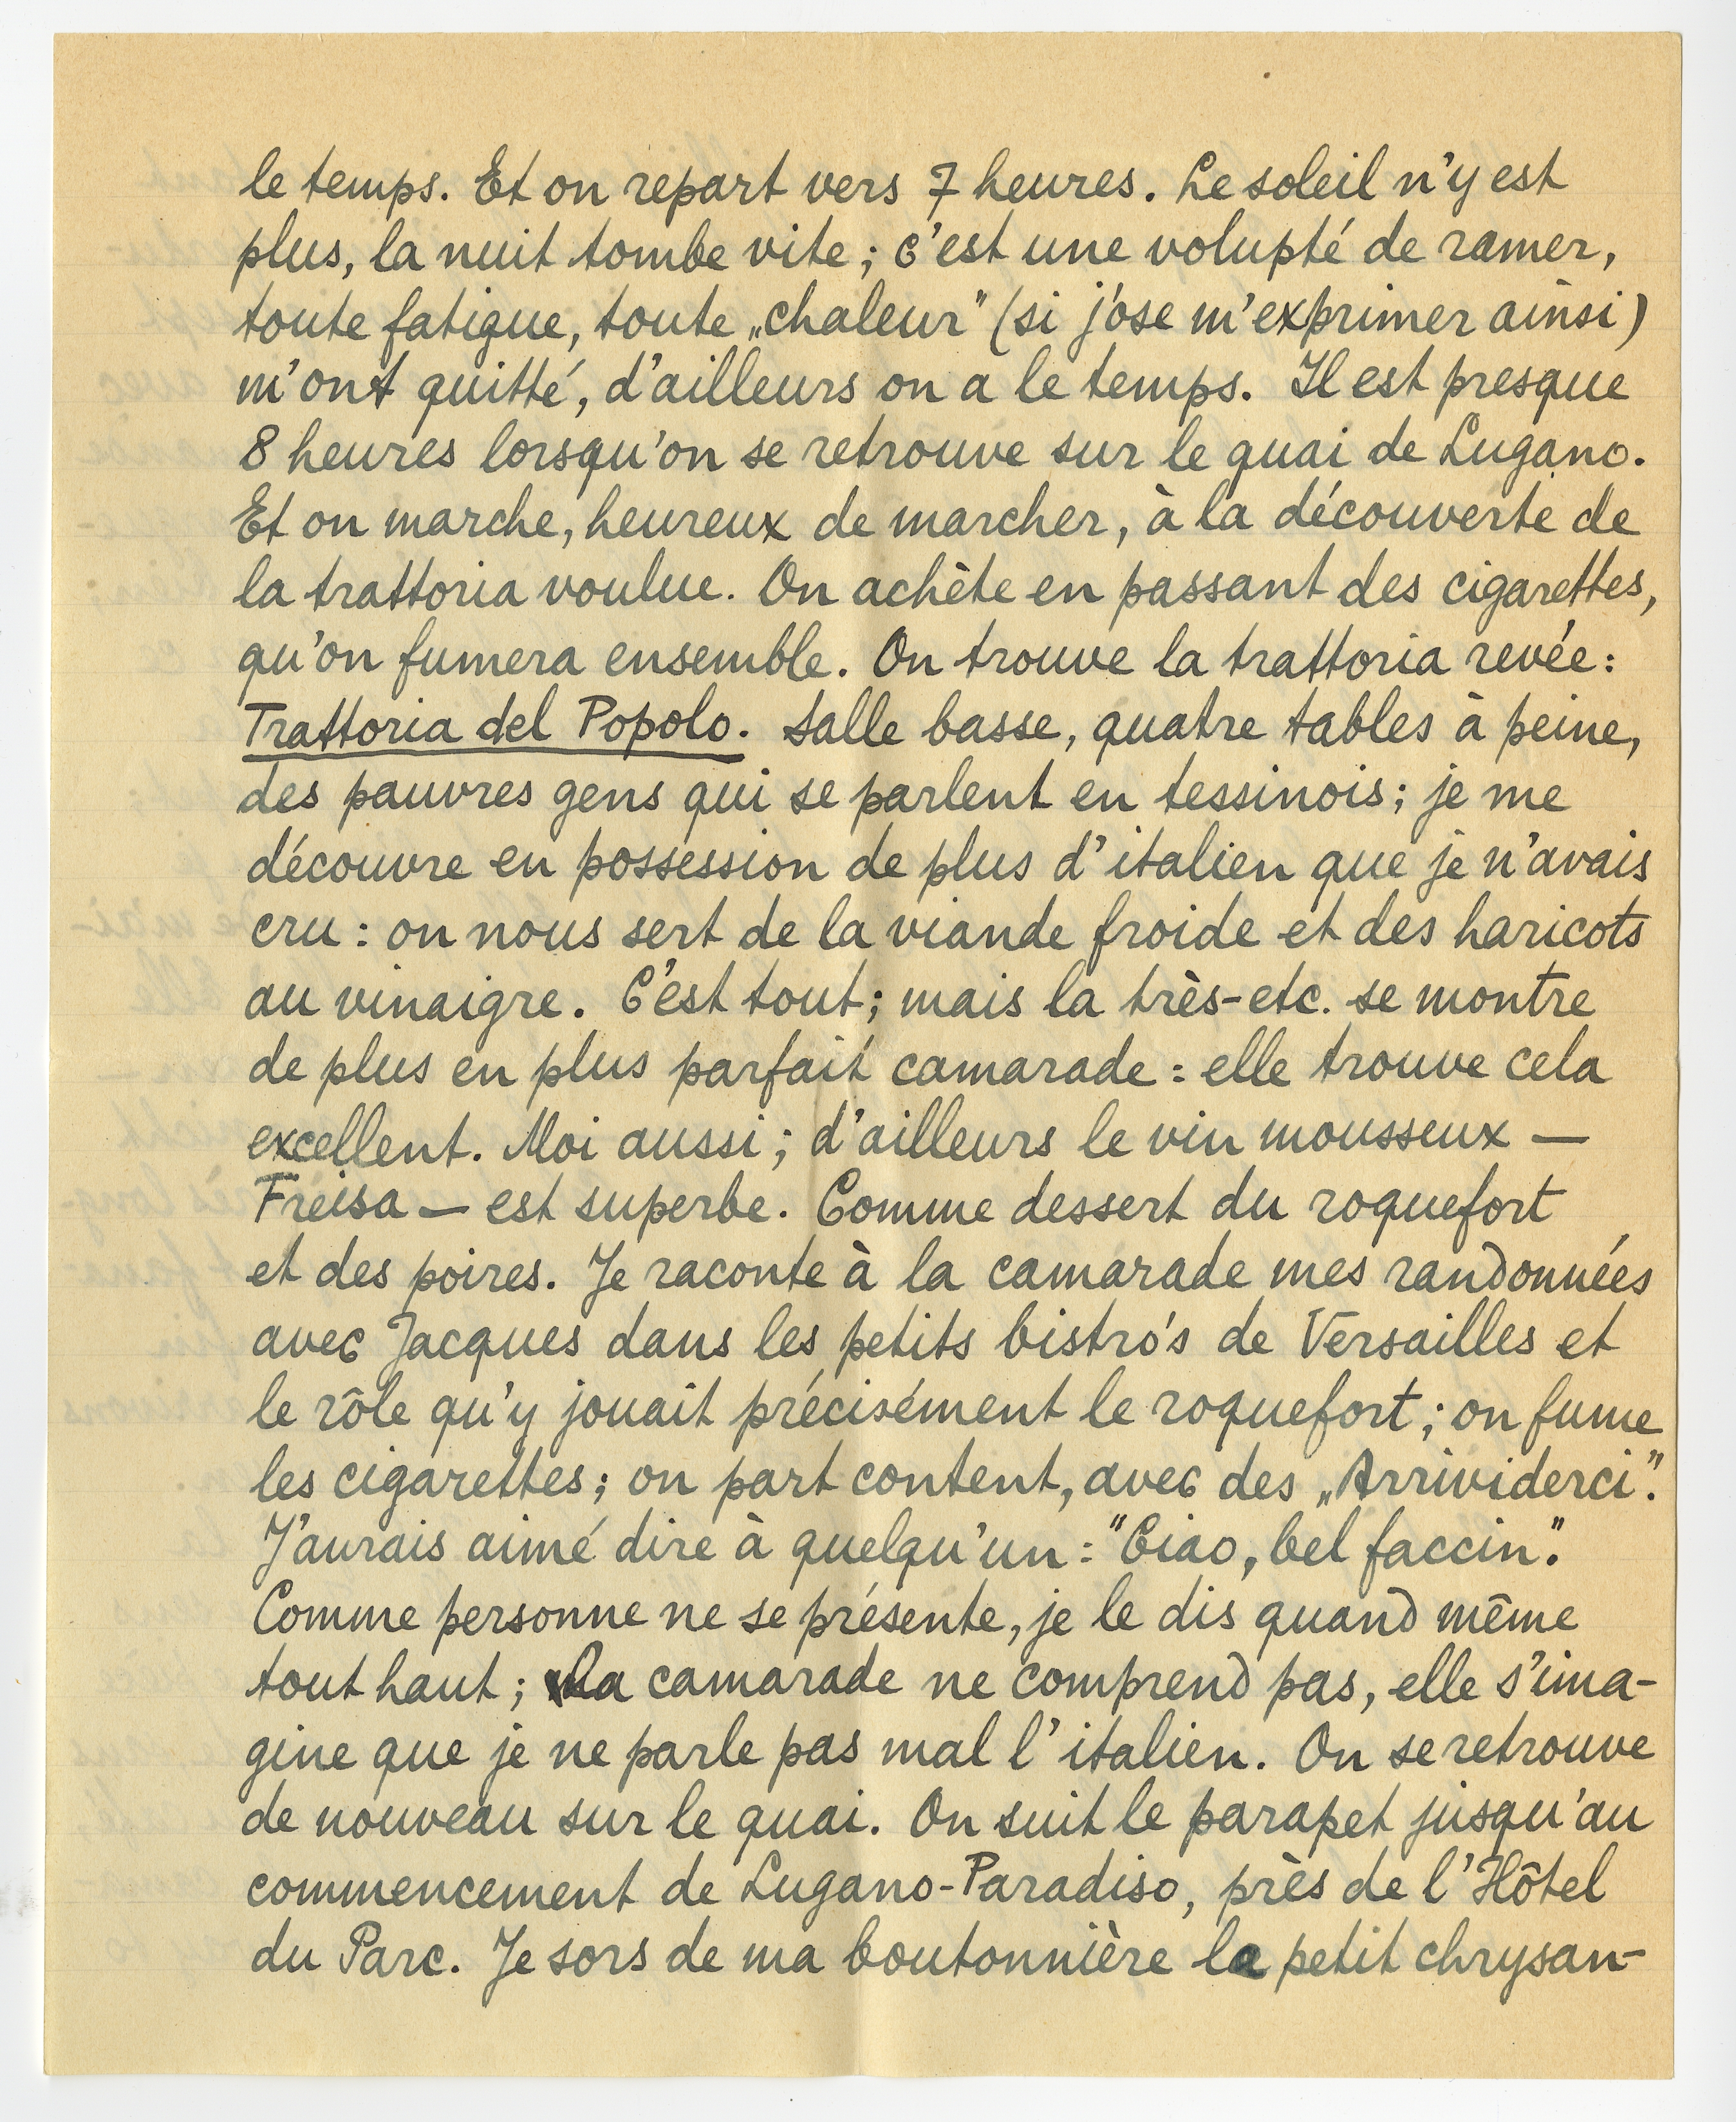 le temps. Et on repart vers 7 heures. Le soleil n'y est
plus, la nuit tombe vite ; c'est une volupté de ramer,
toute fatigue, toute „chaleur" (si j'ose m'exprimer ainsi)
m'ont quitté, d'ailleurs on a le temps. Il est presque
8 heures lorsqu'on se retrouve sur le quai de Lugano.
Et on marche, heureux de marcher, à la découverte de
la trattoria voulue. On achète en passant des cigarettes,
qu'on fumera ensemble. On trouve la trattoria revée :
Trattoria del Popolo. Salle basse, quatre tables à peine,
des pauvres gens qui se parlent en tessinois ; je me
découvre en possession de plus d'italien que je n'avais
cru : on nous sert de la viande froide et des haricots
au vinaigre. C'est tout ; mais la très-etc. se montre
de plus en plus parfait camarade : elle trouve cela
excellent. Moi aussi ; d'ailleurs le vin mousseux —
Freisa — est superbe. Comme dessert du roquefort
et des poires. Je raconte à la camarade mes randonnées
avec Jacques dans les petits bistro's de Versailles et
le rôle qu'y jouait précisément le roquefort ; on fume
les cigarettes ; on part content, avec des „Arrividerci".
J'aurais aimé dire à quelqu'un : "Ciao, bel faccin".
Comme personne ne se présente, je le dis quand même
tout haut ; la camarade ne comprend pas, elle s'ima-
gine que je ne parle pas mal l'italien. On se retrouve
de nouveau sur le quai. On suit le parapet jusqu'au
commencement de Lugano-Paradiso, près de l'Hôtel
du Parc. Je sors de ma boutonnière le petit chrysan-